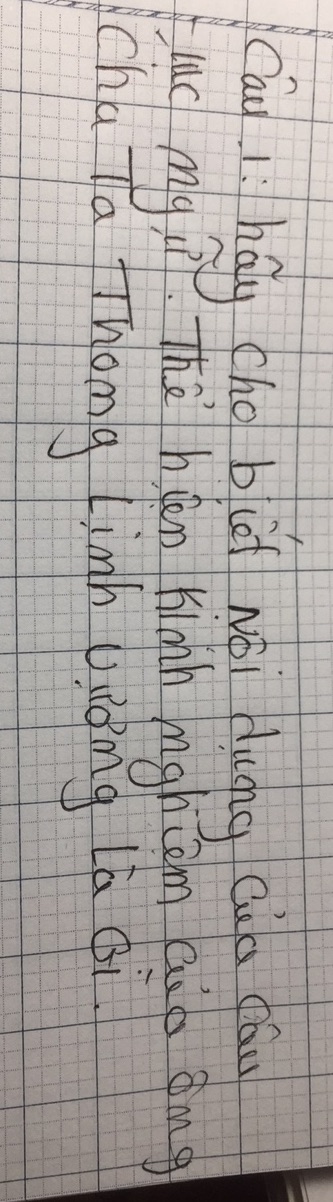 Câu 1: hãy cho biết Nội dung của câu
Tục ngữ. Thể hiện kinh nghiệm của ông
cha Ta Thong Lịnh vượng Là Gì.